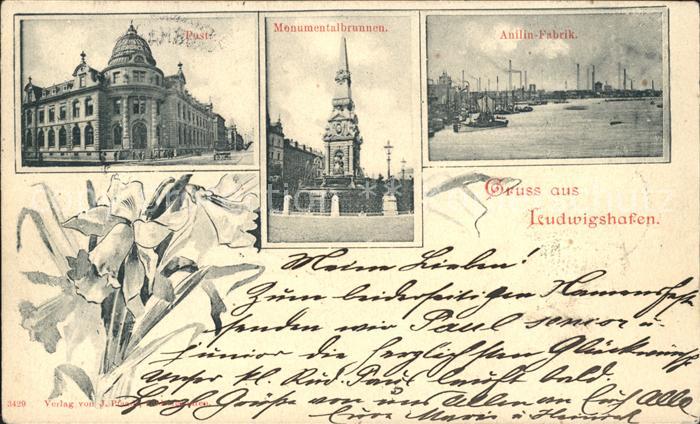 Post.
Monumentalbrunnen.
Anilin-Fabrik.
Gruss aus
Ludwigshafen.
Meine Lieben!
Zum beiderseitigen Namensfeste
senden wir Paul senior u.
junior die herzlichsten Glückwünsche
Unser kl. Rud. Paul lauft bald.
Grüße von uns Allen an Euch Alle
Eure Marie u Heinrich
3429 Verlag von J.